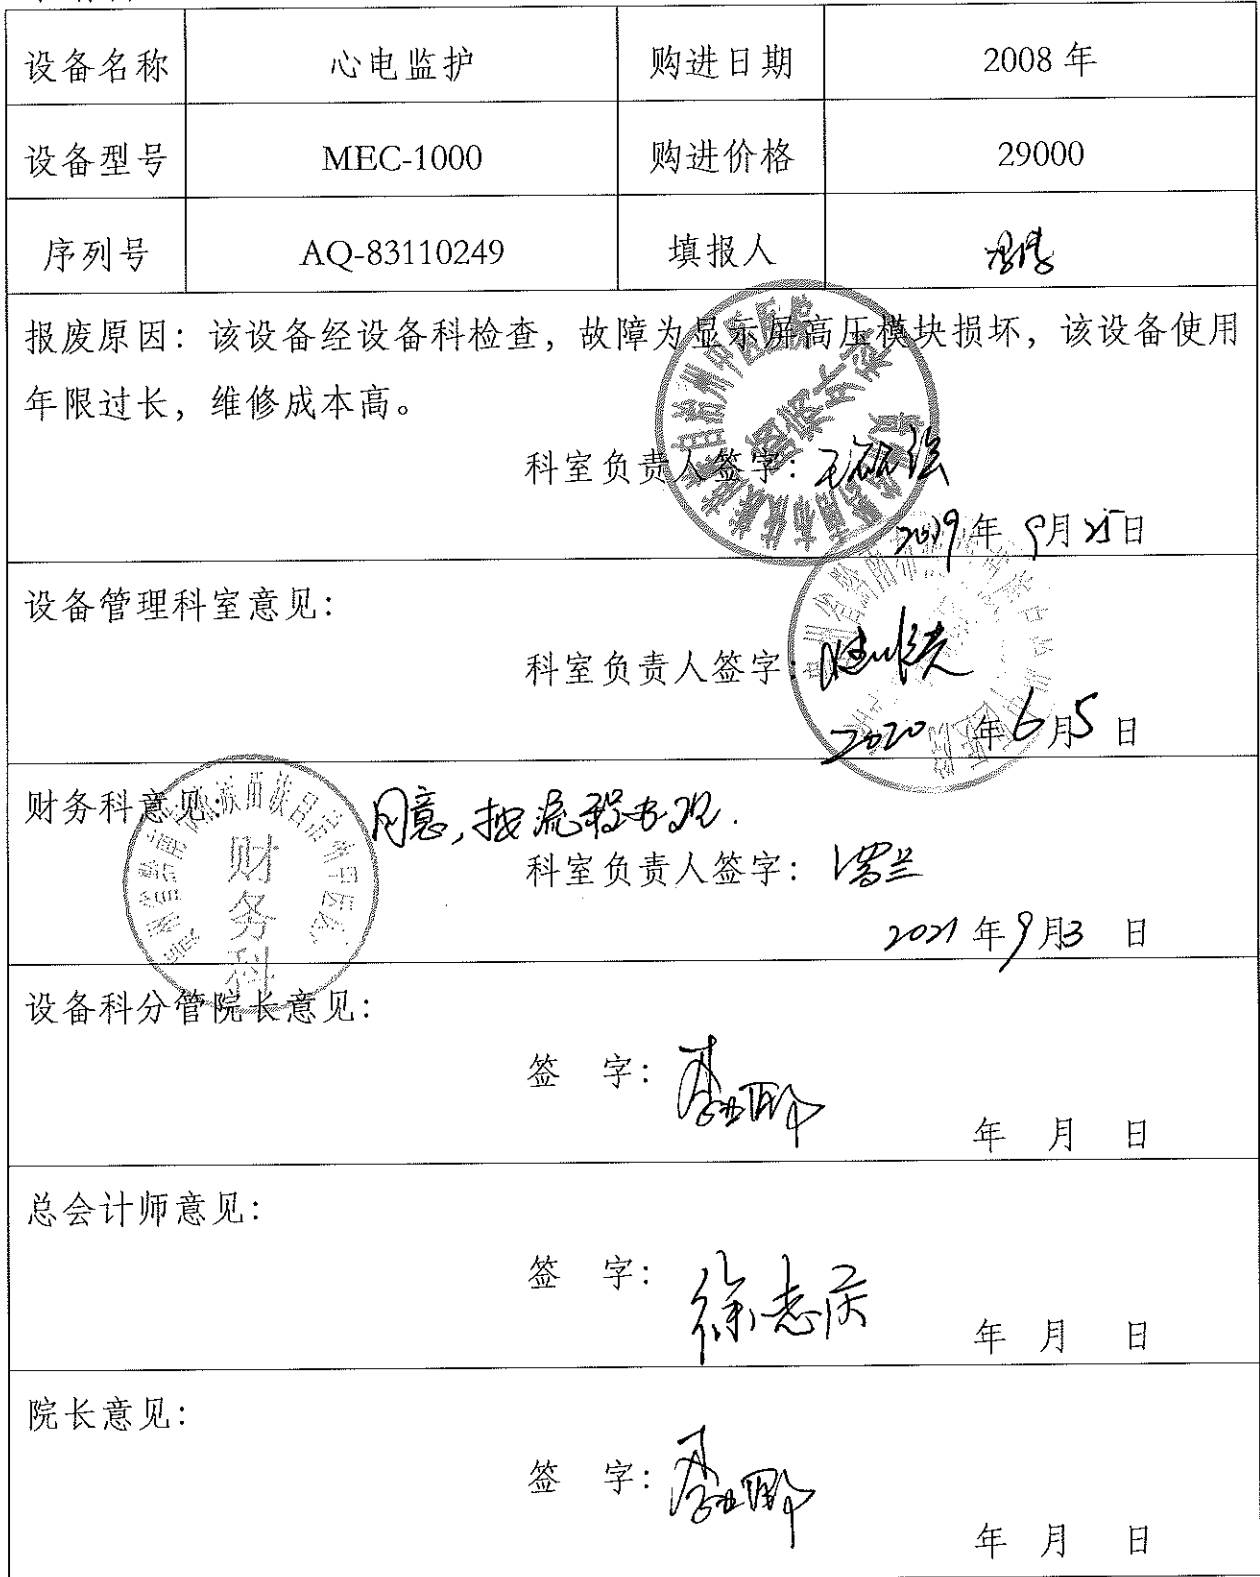 设备名称 心电监护 购进日期 2008 年
设备型号 MEC-1000 购进价格 29000
序列号 AQ-83110249 填报人
报废原因：该设备经设备科检查，故障为显示屏高压模块损坏，该设备使用
年限过长，维修成本高。
科室负责人签字：
2019 年 9月25日
设备管理科室意见：
科室负责人签字：
2020 年6月5 日
财务科意见： 同意，按流程办理.
财务科
科室负责人签字：
2021 年9月3 日
设备科分管院长意见：
签 字：
年 月 日
总会计师意见：
签 字： 徐志庆
年 月 日
院长意见：
签 字：
年 月 日